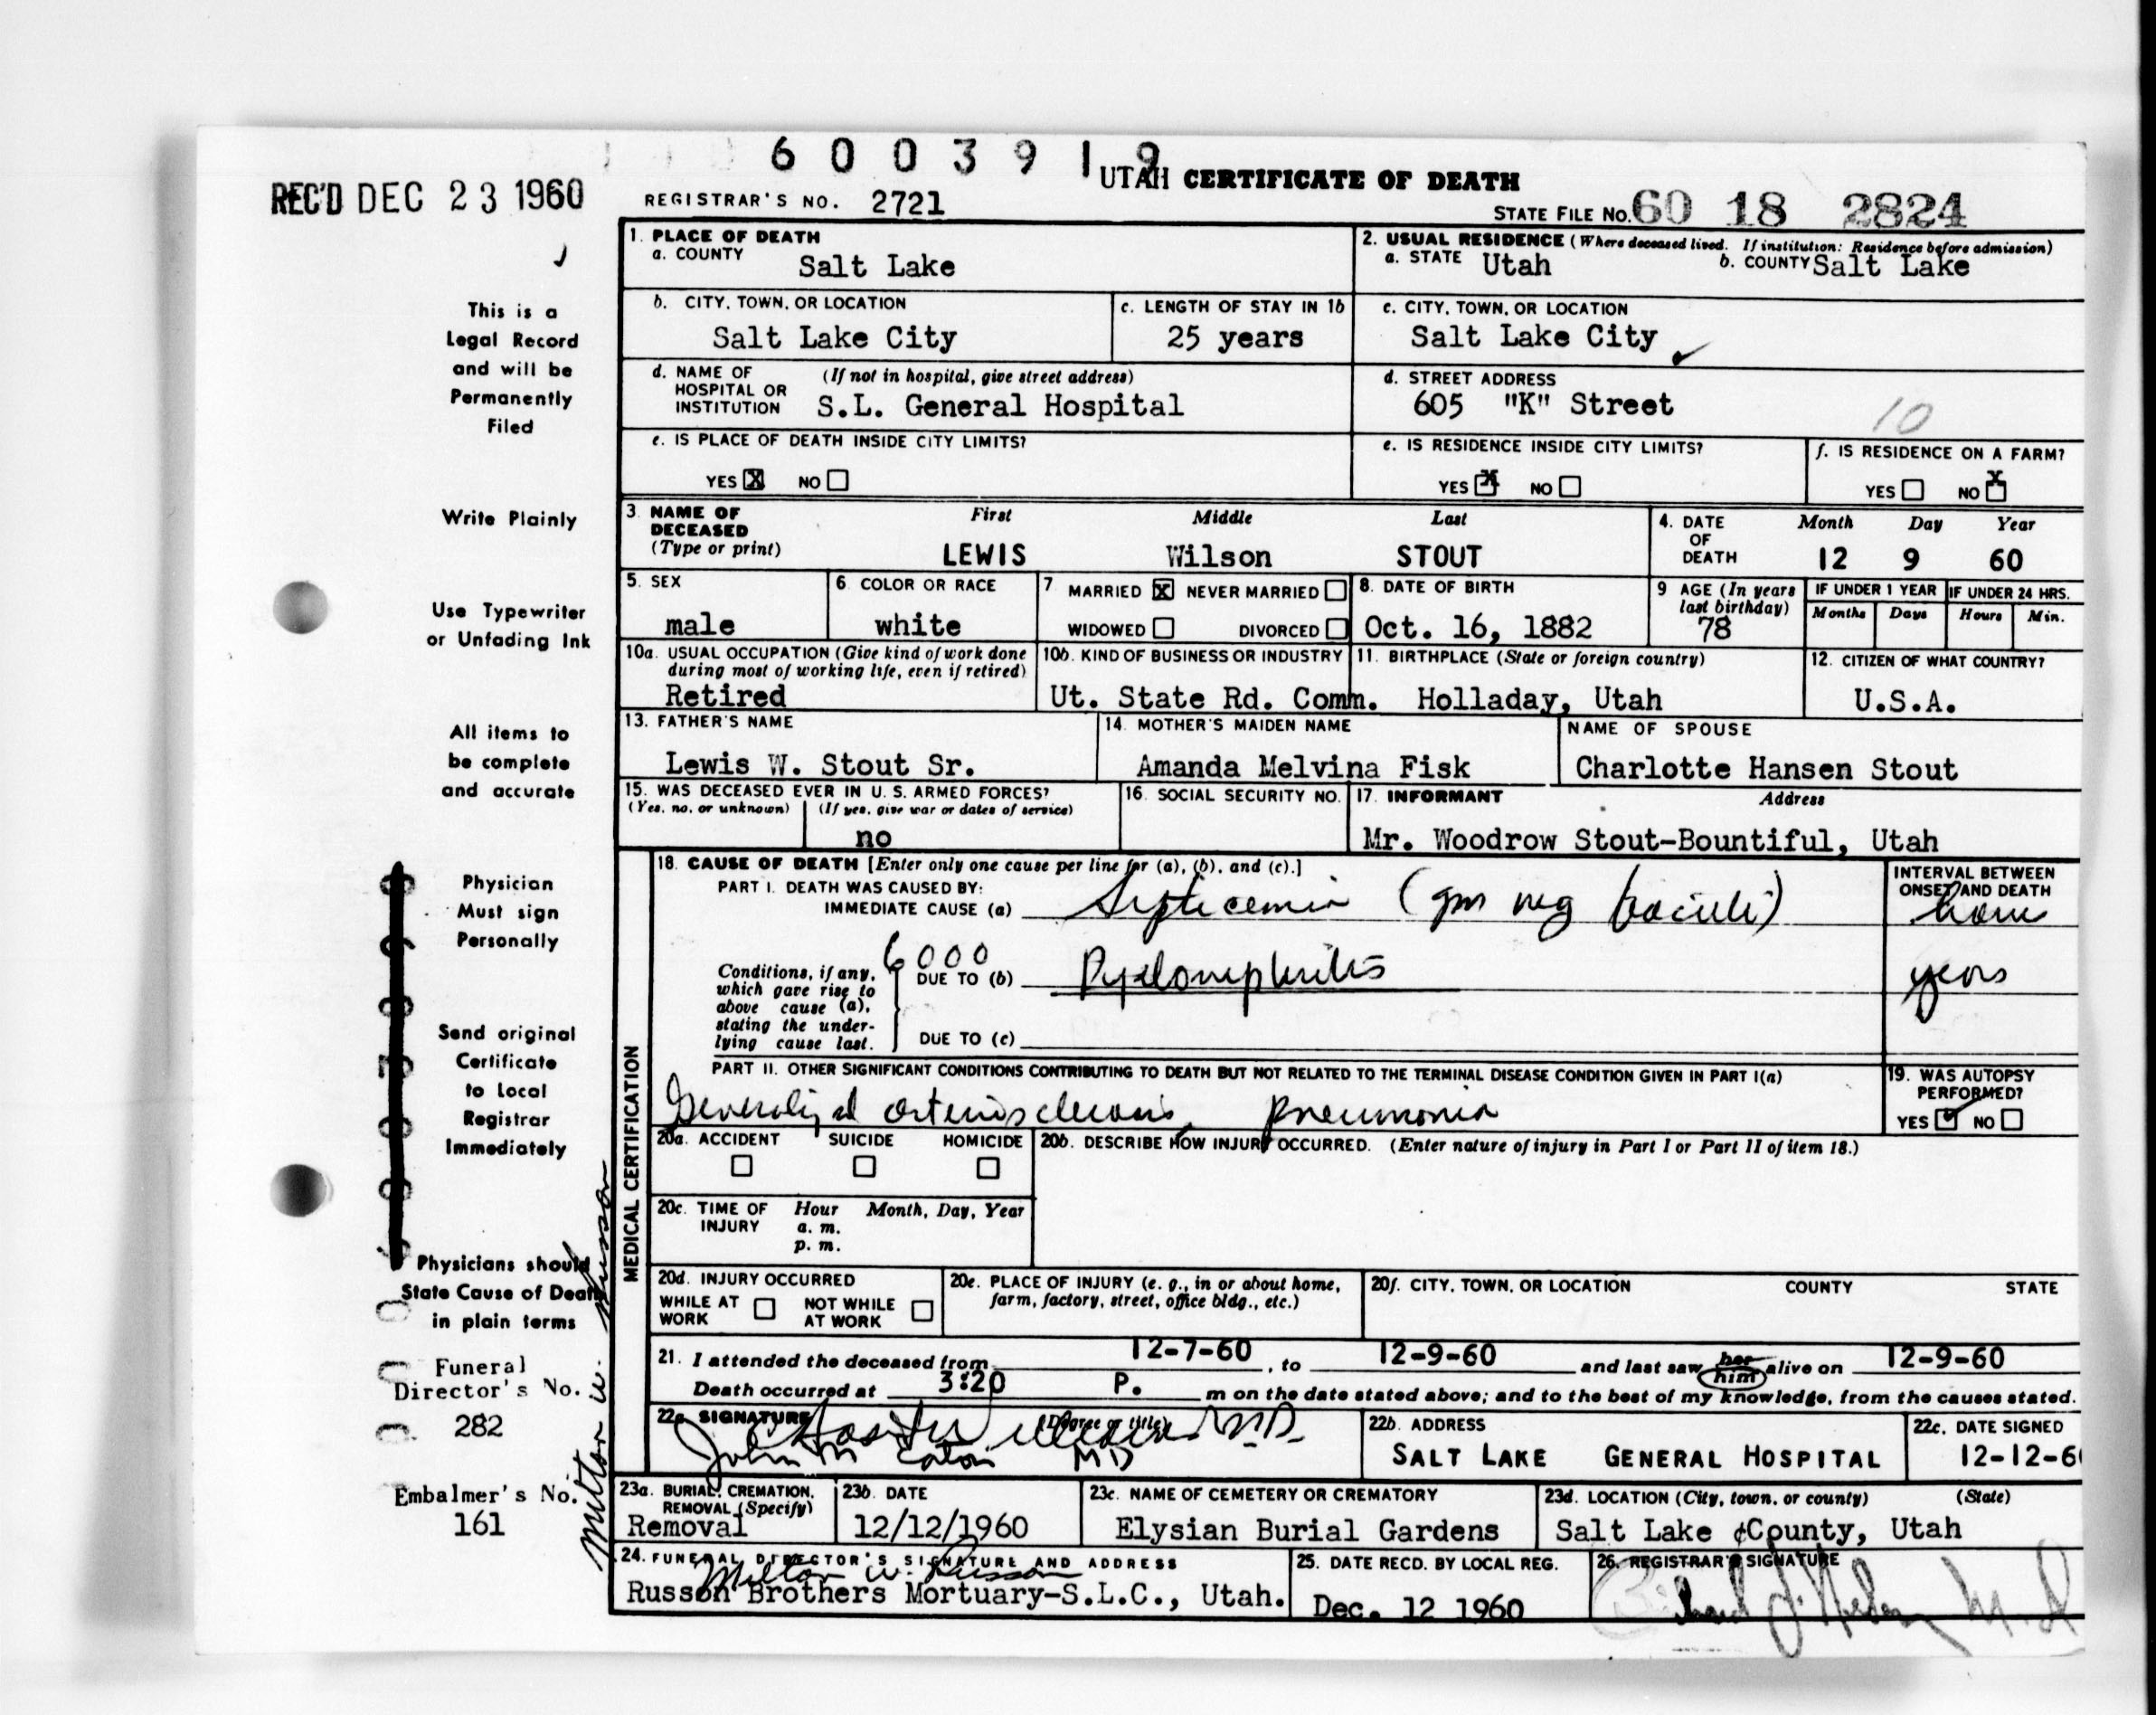 6003919
REC'D DEC 23 1960
UTAH CERTIFICATE OF DEATH
REGISTRAR'S NO. 2721
STATE FILE NO. 60 18 2824
This is a
Legal Record
and will be
Permanently
Filed
Write Plainly
Use Typewriter
or Unfading Ink
All items to
be complete
and accurate
Physician
Must sign
Personally
Send original
Certificate
to Local
Registrar
Immediately
Physicians should
State Cause of Death
in plain terms
Funeral
Director's No.
282
Embalmer's No.
161
Milton W. Russon
1. PLACE OF DEATH
a. COUNTY Salt Lake
2. USUAL RESIDENCE (Where deceased lived. If institution: Residence before admission)
a. STATE Utah b. COUNTY Salt Lake
b. CITY, TOWN, OR LOCATION
Salt Lake City
c. LENGTH OF STAY IN 1b
25 years
c. CITY, TOWN, OR LOCATION
Salt Lake City
d. NAME OF HOSPITAL OR INSTITUTION (If not in hospital, give street address)
S.L. General Hospital
d. STREET ADDRESS
605 "K" Street
10
e. IS PLACE OF DEATH INSIDE CITY LIMITS?
YES X NO
e. IS RESIDENCE INSIDE CITY LIMITS?
YES X NO
f. IS RESIDENCE ON A FARM?
YES NO X
3. NAME OF DECEASED (Type or print)
First Middle Last
LEWIS Wilson STOUT
4. DATE OF DEATH
Month Day Year
12 9 60
5. SEX
male
6. COLOR OR RACE
white
7. MARRIED X NEVER MARRIED
WIDOWED DIVORCED
8. DATE OF BIRTH
Oct. 16, 1882
9 AGE (In years last birthday)
78
IF UNDER 1 YEAR
Months Days
IF UNDER 24 HRS.
Hours Min.
10a. USUAL OCCUPATION (Give kind of work done during most of working life, even if retired)
Retired
10b. KIND OF BUSINESS OR INDUSTRY
Ut. State Rd. Comm.
11. BIRTHPLACE (State or foreign country)
Holladay, Utah
12. CITIZEN OF WHAT COUNTRY?
U.S.A.
13. FATHER'S NAME
Lewis W. Stout Sr.
14. MOTHER'S MAIDEN NAME
Amanda Melvina Fisk
NAME OF SPOUSE
Charlotte Hansen Stout
15. WAS DECEASED EVER IN U. S. ARMED FORCES?
(Yes, no, or unknown) (If yes, give war or dates of service)
no
16. SOCIAL SECURITY NO.
17. INFORMANT Address
Mr. Woodrow Stout-Bountiful, Utah
MEDICAL CERTIFICATION
18. CAUSE OF DEATH [Enter only one cause per line for (a), (b), and (c).]
PART I. DEATH WAS CAUSED BY:
IMMEDIATE CAUSE (a) Septicemia (gm neg bacilli)
INTERVAL BETWEEN ONSET AND DEATH
hours
6000
Conditions, if any, which gave rise to above cause (a), stating the underlying cause last.
DUE TO (b) Pyelonephritis
years
DUE TO (c)
PART II. OTHER SIGNIFICANT CONDITIONS CONTRIBUTING TO DEATH BUT NOT RELATED TO THE TERMINAL DISEASE CONDITION GIVEN IN PART I(a)
Generalized arteriosclerosis, pneumonia
19. WAS AUTOPSY PERFORMED?
YES ✓ NO
20a. ACCIDENT SUICIDE HOMICIDE
20b. DESCRIBE HOW INJURY OCCURRED. (Enter nature of injury in Part I or Part II of item 18.)
20c. TIME OF INJURY Hour Month, Day, Year
a. m.
p. m.
20d. INJURY OCCURRED
WHILE AT WORK NOT WHILE AT WORK
20e. PLACE OF INJURY (e. g., in or about home, farm, factory, street, office bldg., etc.)
20f. CITY, TOWN, OR LOCATION COUNTY STATE
21. I attended the deceased from 12-7-60, to 12-9-60 and last saw her him alive on 12-9-60
Death occurred at 3:20 P. m on the date stated above; and to the best of my knowledge, from the causes stated.
22a. SIGNATURE (Degree or title) M.D.
John M Eaton MD
22b. ADDRESS
SALT LAKE GENERAL HOSPITAL
22c. DATE SIGNED
12-12-60
23a. BURIAL, CREMATION, REMOVAL (Specify)
Removal
23b. DATE
12/12/1960
23c. NAME OF CEMETERY OR CREMATORY
Elysian Burial Gardens
23d. LOCATION (City, town, or county) (State)
Salt Lake ¢County, Utah
24. FUNERAL DIRECTOR'S SIGNATURE AND ADDRESS
Milton W. Russon
Russon Brothers Mortuary-S.L.C., Utah.
25. DATE RECD. BY LOCAL REG.
Dec. 12 1960
26. REGISTRAR'S SIGNATURE
M.D